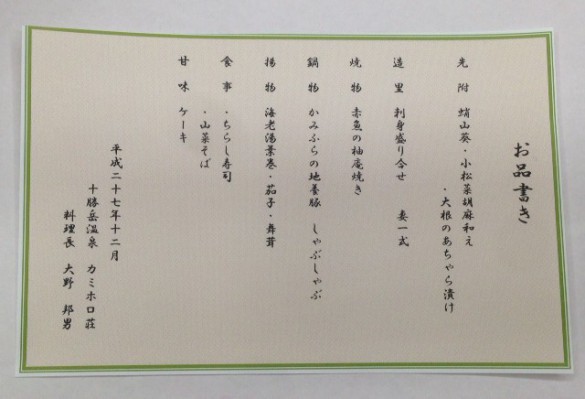 お品書き
先附 蛸山葵・小松菜胡麻和え
・大根のあちゃら漬け
造里 刺身盛り合せ 妻一式
焼物 赤魚の柚庵焼き
鍋物 かみふらの地養豚 しゃぶしゃぶ
揚物 海老湯葉巻・茄子・舞茸
食事 ・ちらし寿司
・山菜そば
甘味 ケーキ
平成二十七年十二月
十勝岳温泉 カミホロ荘
料理長 大野 邦男